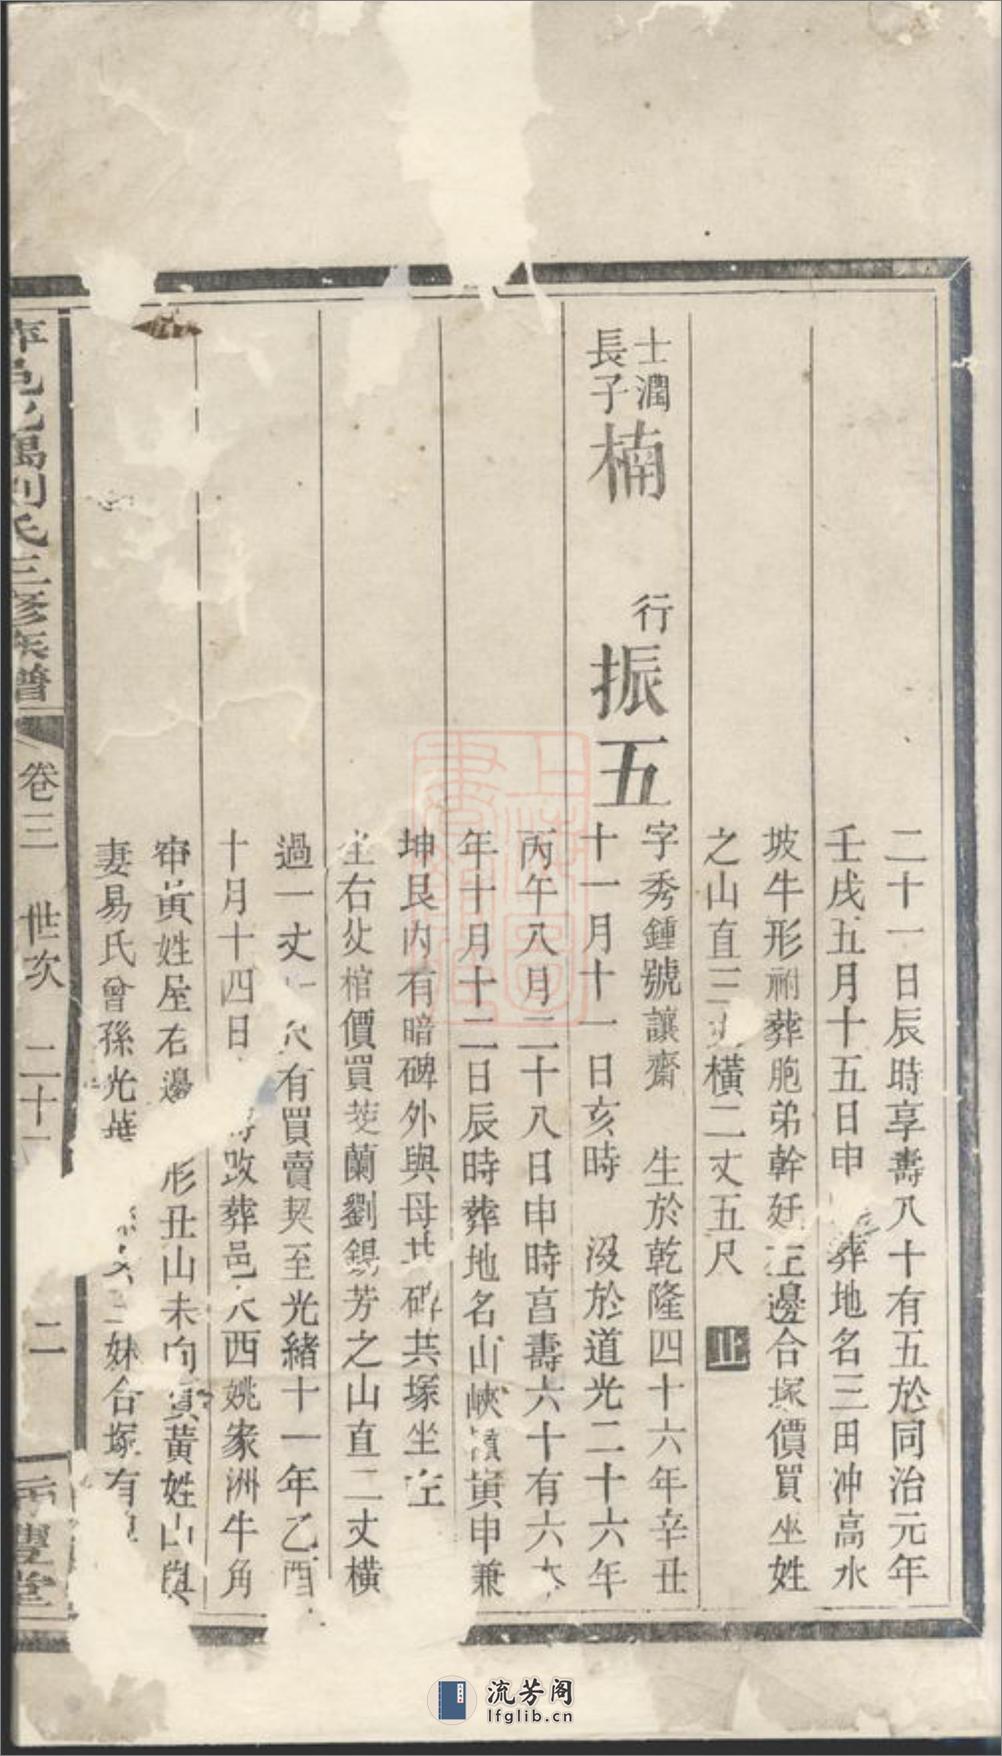 二十一日辰時享壽八十有五於同治元年
壬戌五月十五日申 葬地名三田冲高水
坡牛形祔葬胞弟幹廷左邊合塚價買巫姓
之山直三丈橫二丈五尺 止
士潤
長子
楠
行
振五
字秀鍾號讓齋 生於乾隆四十六年辛丑
十一月十一日亥時 沒於道光二十六年
丙午八月二十八日申時享壽六十有六本
年十月十二日辰時葬地名山峽 寅申兼
坤艮內有暗碑外與母共碑共塚坐左
右父棺價買茭蘭劉錫芳之山直二丈橫
過一丈 有買賣契至光緒十一年乙酉
十月十四日 改葬邑 西姚家洲牛角
黃姓屋右邊 形丑山未向 黃姓山與
妻易氏曾孫光華 妹合塚有
萬劉氏三修族譜
卷三 世次 二十 二
豐堂
流芳阁
lfglib.cn